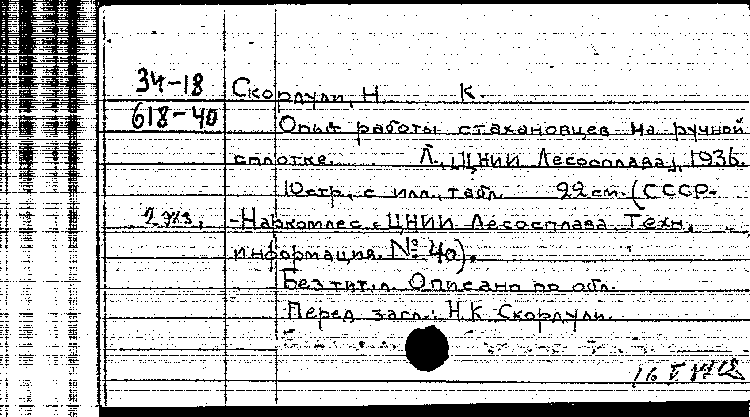 34-18 Скордули, Н. К.
618-40 Опыт работы стахановцев на ручной
сплотке. Л., ЦНИИ Лесосплава, 1936.
10стр. с илл., табл. 22см. (СССР.
2 экз. -Наркомлес. ЦНИИ Лесосплава. Техн.
информация. № 40).
Без тит. л. Описано по обл.
Перед загл.: Н.К Скордули.
16 V